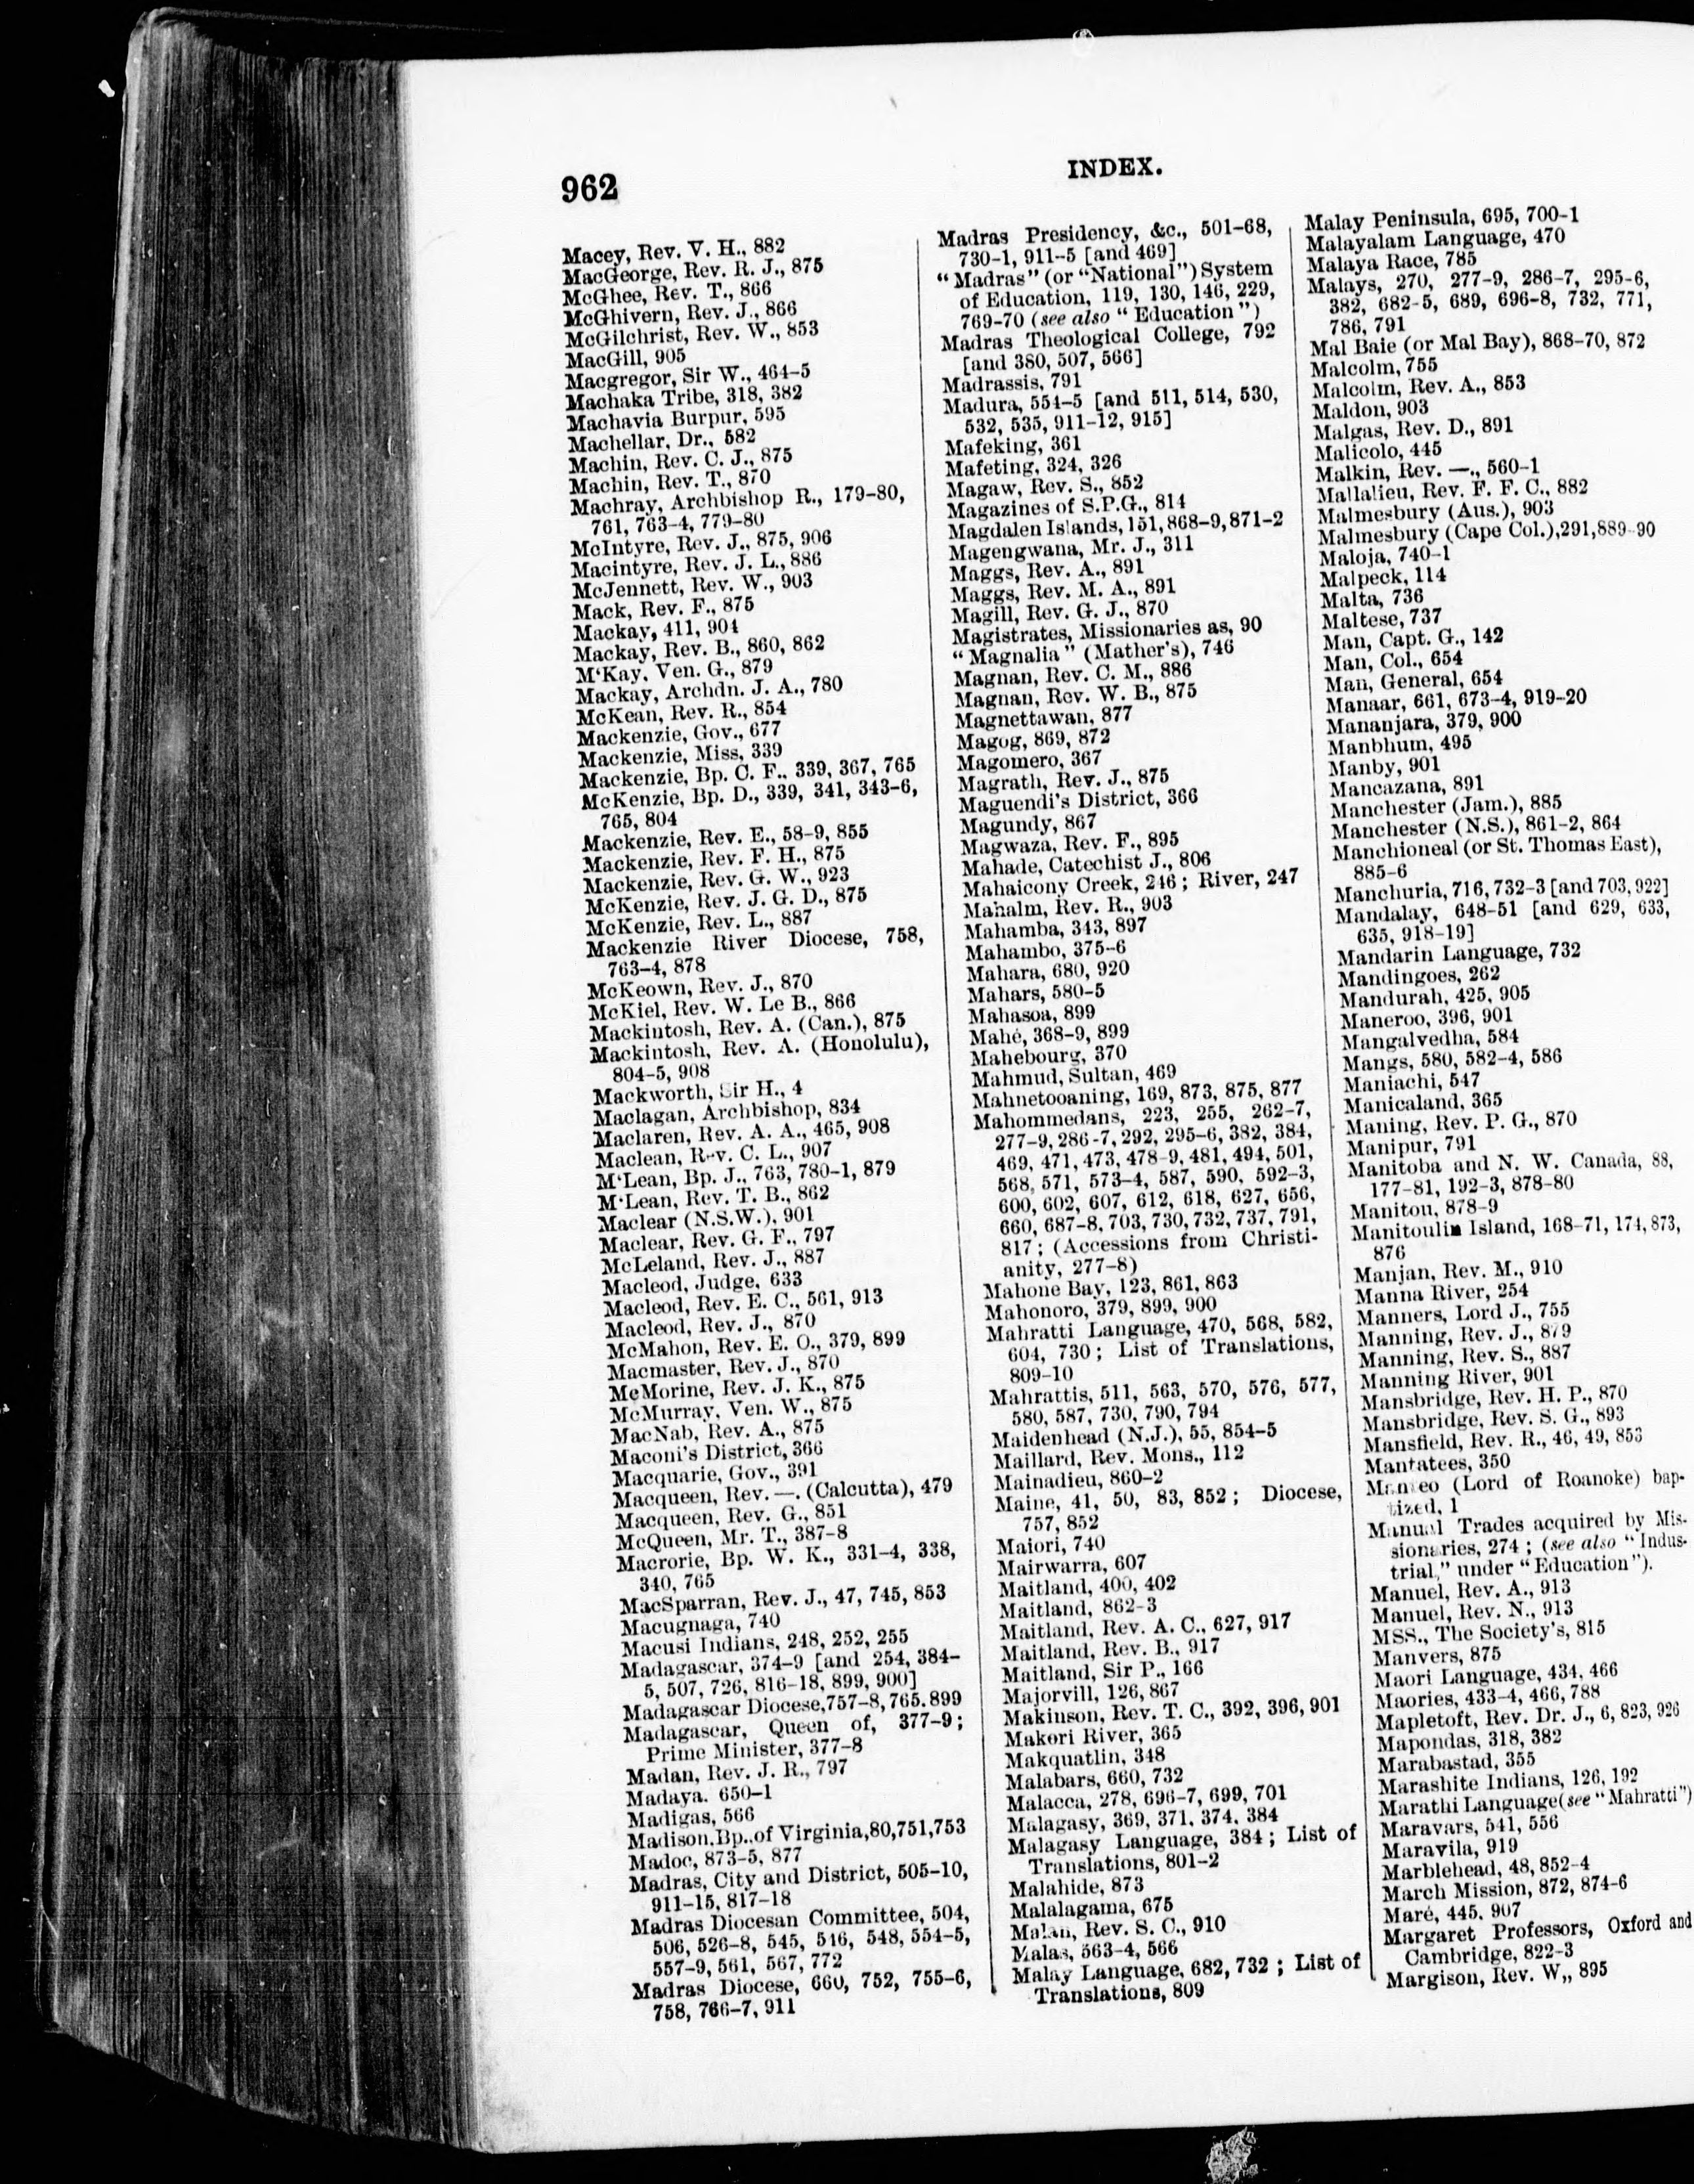 962
INDEX.
Macey, Rev. V. H., 882
MacGeorge, Rev. R. J., 875
McGhee, Rev. T., 866
McGhivern, Rev. J., 866
McGilchrist, Rev. W., 853
MacGill, 905
Macgregor, Sir W., 464-5
Machaka Tribe, 318, 382
Machavia Burpur, 595
Machellar, Dr., 582
Machin, Rev. C. J., 875
Machin, Rev. T., 870
Machray, Archbishop R., 179-80,
761, 763-4, 779-80
McIntyre, Rev. J., 875, 906
Macintyre, Rev. J. L., 886
McJennett, Rev. W., 903
Mack, Rev. F., 875
Mackay, 411, 904
Mackay, Rev. B., 860, 862
M'Kay, Ven. G., 879
Mackay, Archdn. J. A., 780
McKean, Rev. R., 854
Mackenzie, Gov., 677
Mackenzie, Miss, 339
Mackenzie, Bp. C. F., 339, 367, 765
McKenzie, Bp. D., 339, 341, 343-6,
765, 804
Mackenzie, Rev. E., 58-9, 855
Mackenzie, Rev. F. H., 875
Mackenzie, Rev. G. W., 923
McKenzie, Rev. J. G. D., 875
McKenzie, Rev. L., 887
Mackenzie River Diocese, 758,
763-4, 878
McKeown, Rev. J., 870
McKiel, Rev. W. Le B., 866
Mackintosh, Rev. A. (Can.), 875
Mackintosh, Rev. A. (Honolulu),
804-5, 908
Mackworth, Sir H., 4
Maclagan, Archbishop, 834
Maclaren, Rev. A. A., 465, 908
Maclean, Rev. C. L., 907
M'Lean, Bp. J., 763, 780-1, 879
M'Lean, Rev. T. B., 862
Maclear (N.S.W.), 901
Maclear, Rev. G. F., 797
McLeland, Rev. J., 887
Macleod, Judge, 633
Macleod, Rev. E. C., 561, 913
Macleod, Rev. J., 870
McMahon, Rev. E. O., 379, 899
Macmaster, Rev. J., 870
McMorine, Rev. J. K., 875
McMurray, Ven. W., 875
MacNab, Rev. A., 875
Maconi's District, 366
Macquarie, Gov., 391
Macqueen, Rev. —. (Calcutta), 479
Macqueen, Rev. G., 851
McQueen, Mr. T., 387-8
Macrorie, Bp. W. K., 331-4, 338,
340, 765
MacSparran, Rev. J., 47, 745, 853
Macugnaga, 740
Macusi Indians, 248, 252, 255
Madagascar, 374-9 [and 254, 384-
5, 507, 726, 816-18, 899, 900]
Madagascar Diocese, 757-8, 765, 899
Madagascar, Queen of, 377-9;
Prime Minister, 377-8
Madan, Rev. J. R., 797
Madaya. 650-1
Madigas, 566
Madison, Bp., of Virginia, 80, 751, 753
Madoc, 873-5, 877
Madras, City and District, 505-10,
911-15, 817-18
Madras Diocesan Committee, 504,
506, 526-8, 545, 546, 548, 554-5,
557-9, 561, 567, 772
Madras Diocese, 660, 752, 755-6,
758, 766-7, 911
Madras Presidency, &c., 501-68,
730-1, 911-5 [and 469]
"Madras" (or "National") System
of Education, 119, 130, 146, 229,
769-70 (see also "Education")
Madras Theological College, 792
[and 380, 507, 566]
Madrassis, 791
Madura, 554-5 [and 511, 514, 530,
532, 535, 911-12, 915]
Mafeking, 361
Mafeting, 324, 326
Magaw, Rev. S., 852
Magazines of S.P.G., 814
Magdalen Islands, 151, 868-9, 871-2
Magengwana, Mr. J., 311
Maggs, Rev. A., 891
Maggs, Rev. M. A., 891
Magill, Rev. G. J., 870
Magistrates, Missionaries as, 90
"Magnalia" (Mather's), 746
Magnan, Rev. C. M., 886
Magnan, Rev. W. B., 875
Magnettawan, 877
Magog, 869, 872
Magomero, 367
Magrath, Rev. J., 875
Maguendi's District, 366
Magundy, 867
Magwaza, Rev. F., 895
Mahade, Catechist J., 806
Mahaicony Creek, 246; River, 247
Mahalm, Rev. R., 903
Mahamba, 343, 897
Mahambo, 375-6
Mahara, 680, 920
Mahars, 580-5
Mahasoa, 899
Mahé, 368-9, 899
Mahebourg, 370
Mahmud, Sultan, 469
Mahnetooaning, 169, 873, 875, 877
Mahommedans, 223, 255, 262-7,
277-9, 286-7, 292, 295-6, 382, 384,
469, 471, 473, 478-9, 481, 494, 501,
568, 571, 573-4, 587, 590, 592-3,
600, 602, 607, 612, 618, 627, 656,
660, 687-8, 703, 730, 732, 737, 791,
817; (Accessions from Christi-
anity, 277-8)
Mahone Bay, 123, 861, 863
Mahonoro, 379, 899, 900
Mahratti Language, 470, 568, 582,
604, 730; List of Translations,
809-10
Mahrattis, 511, 563, 570, 576, 577,
580, 587, 730, 790, 794
Maidenhead (N.J.), 55, 854-5
Maillard, Rev. Mons., 112
Mainadieu, 860-2
Maine, 41, 50, 83, 852; Diocese,
757, 852
Maiori, 740
Mairwarra, 607
Maitland, 400, 402
Maitland, 862-3
Maitland, Rev. A. C., 627, 917
Maitland, Rev. B., 917
Maitland, Sir P., 166
Majorvill, 126, 867
Makinson, Rev. T. C., 392, 396, 901
Makori River, 365
Makquatlin, 348
Malabars, 660, 732
Malacca, 278, 696-7, 699, 701
Malagasy, 369, 371, 374, 384
Malagasy Language, 384; List of
Translations, 801-2
Malahide, 873
Malalagama, 675
Malan, Rev. S. C., 910
Malas, 563-4, 566
Malay Language, 682, 732; List of
Translations, 809
Malay Peninsula, 695, 700-1
Malayalam Language, 470
Malaya Race, 785
Malays, 270, 277-9, 286-7, 295-6,
382, 682-5, 689, 696-8, 732, 771,
786, 791
Mal Baie (or Mal Bay), 868-70, 872
Malcolm, 755
Malcolm, Rev. A., 853
Maldon, 903
Malgas, Rev. D., 891
Malicolo, 445
Malkin, Rev. —., 560-1
Mallalieu, Rev. F. F. C., 882
Malmesbury (Aus.), 903
Malmesbury (Cape Col.), 291, 889-90
Maloja, 740-1
Malpeck, 114
Malta, 736
Maltese, 737
Man, Capt. G., 142
Man, Col., 654
Man, General, 654
Manaar, 661, 673-4, 919-20
Mananjara, 379, 900
Manbhum, 495
Manby, 901
Mancazana, 891
Manchester (Jam.), 885
Manchester (N.S.), 861-2, 864
Manchioneal (or St. Thomas East),
885-6
Manchuria, 716, 732-3 [and 703, 922]
Mandalay, 648-51 [and 629, 633,
635, 918-19]
Mandarin Language, 732
Mandingoes, 262
Mandurah, 425, 905
Maneroo, 396, 901
Mangalvedha, 584
Mangs, 580, 582-4, 586
Maniachi, 547
Manicaland, 365
Maning, Rev. P. G., 870
Manipur, 791
Manitoba and N. W. Canada, 88,
177-81, 192-3, 878-80
Manitou, 878-9
Manitoulin Island, 168-71, 174, 873,
876
Manjan, Rev. M., 910
Manna River, 254
Manners, Lord J., 755
Manning, Rev. J., 879
Manning, Rev. S., 887
Manning River, 901
Mansbridge, Rev. H. P., 870
Mansbridge, Rev. S. G., 893
Mansfield, Rev. R., 46, 49, 853
Mantatees, 350
Manteo (Lord of Roanoke) bap-
tized, 1
Manual Trades acquired by Mis-
sionaries, 274; (see also "Indus-
trial," under "Education").
Manuel, Rev. A., 913
Manuel, Rev. N., 913
MSS., The Society's, 815
Manvers, 875
Maori Language, 434, 466
Maories, 433-4, 466, 788
Mapletoft, Rev. Dr. J., 6, 823, 926
Mapondas, 318, 382
Marabastad, 355
Marashite Indians, 126, 192
Marathi Language (see "Mahratti")
Maravars, 541, 556
Maravila, 919
Marblehead, 48, 852-4
March Mission, 872, 874-6
Maré, 445, 907
Margaret Professors, Oxford and
Cambridge, 822-3
Margison, Rev. W,, 895